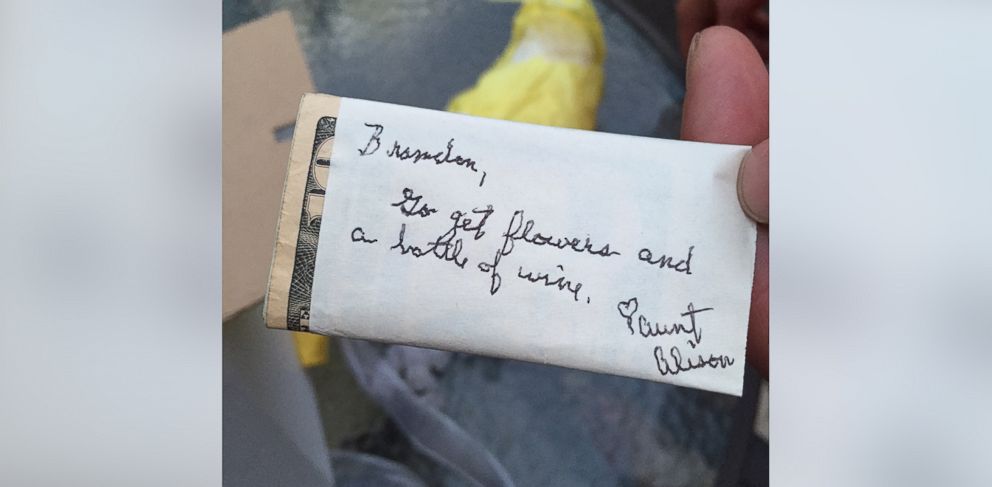 Brandon,
Go get flowers and
a bottle of wine.
♡ aunt
Alison